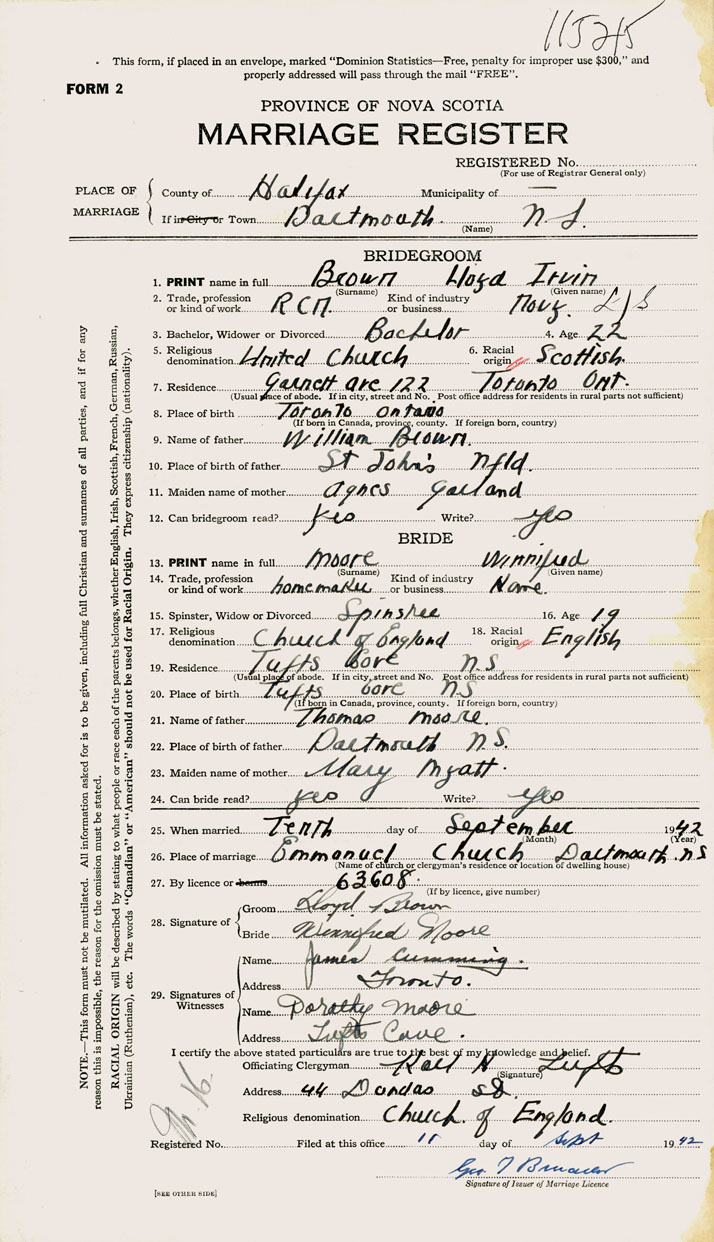 11525
This form, if placed in an envelope, marked "Dominion Statistics—Free, penalty for improper use $300," and
properly addressed will pass through the mail "FREE".
FORM 2
PROVINCE OF NOVA SCOTIA
MARRIAGE REGISTER
REGISTERED No.
(For use of Registrar General only)
PLACE OF MARRIAGE
County of Halifax Municipality of —
If in City or Town Dartmouth N.S.
(Name)
BRIDEGROOM
1. PRINT name in full Brown Lloyd Irvin
(Surname) (Given name)
2. Trade, profession or kind of work R C N. Kind of industry or business Navy.
3. Bachelor, Widower or Divorced Bachelor 4. Age 22
5. Religious denomination United Church 6. Racial origin Scottish
7. Residence Garnett ave 122 Toronto Ont.
(Usual place of abode. If in city, street and No. Post office address for residents in rural parts not sufficient)
8. Place of birth Toronto Ontario
(If born in Canada, province, county. If foreign born, country)
9. Name of father William Brown.
10. Place of birth of father St John's Nfld.
11. Maiden name of mother Agnes Garland
12. Can bridegroom read? yes Write? yes
BRIDE
13. PRINT name in full Moore Winnifred
(Surname) (Given name)
14. Trade, profession or kind of work homemaker Kind of industry or business Home.
15. Spinster, Widow or Divorced Spinster 16. Age 19
17. Religious denomination Church of England 18. Racial origin English
19. Residence Tufts Cove N.S
(Usual place of abode. If in city, street and No. Post office address for residents in rural parts not sufficient)
20. Place of birth Tufts Cove N S
(If born in Canada, province, county. If foreign born, country)
21. Name of father Thomas Moore.
22. Place of birth of father Dartmouth N.S.
23. Maiden name of mother Mary Myatt.
24. Can bride read? yes Write? yes
25. When married Tenth day of September 1942
(Month) (Year)
26. Place of marriage Emmanuel Church Dartmouth. NS
(Name of church or clergyman's residence or location of dwelling house)
27. By licence or banns 63608.
(If by licence, give number)
28. Signature of
Groom Lloyd Brown
Bride Winnifred Moore
29. Signatures of Witnesses
Name James Cumming.
Address Toronto.
Name Dorothy Moore
Address Tufts Cove.
I certify the above stated particulars are true to the best of my knowledge and belief.
Officiating Clergyman Karl H Tufts
(Signature)
Address 44 Dundas St.
Religious denomination Church of England.
Registered No. Filed at this office 11 day of Sept 1942
Geo
Signature of Issuer of Marriage Licence
[SEE OTHER SIDE]
NOTE.—This form must not be mutilated. All information asked for is to be given, including full Christian and surnames of all parties, and if for any
reason this is impossible, the reason for the omission must be stated.
RACIAL ORIGIN will be described by stating to what people or race each of the parents belongs, whether English, Irish, Scottish, French, German, Russian,
Ukrainian (Ruthenian), etc. The words "Canadian" or "American" should not be used for Racial Origin. They express citizenship (nationality).